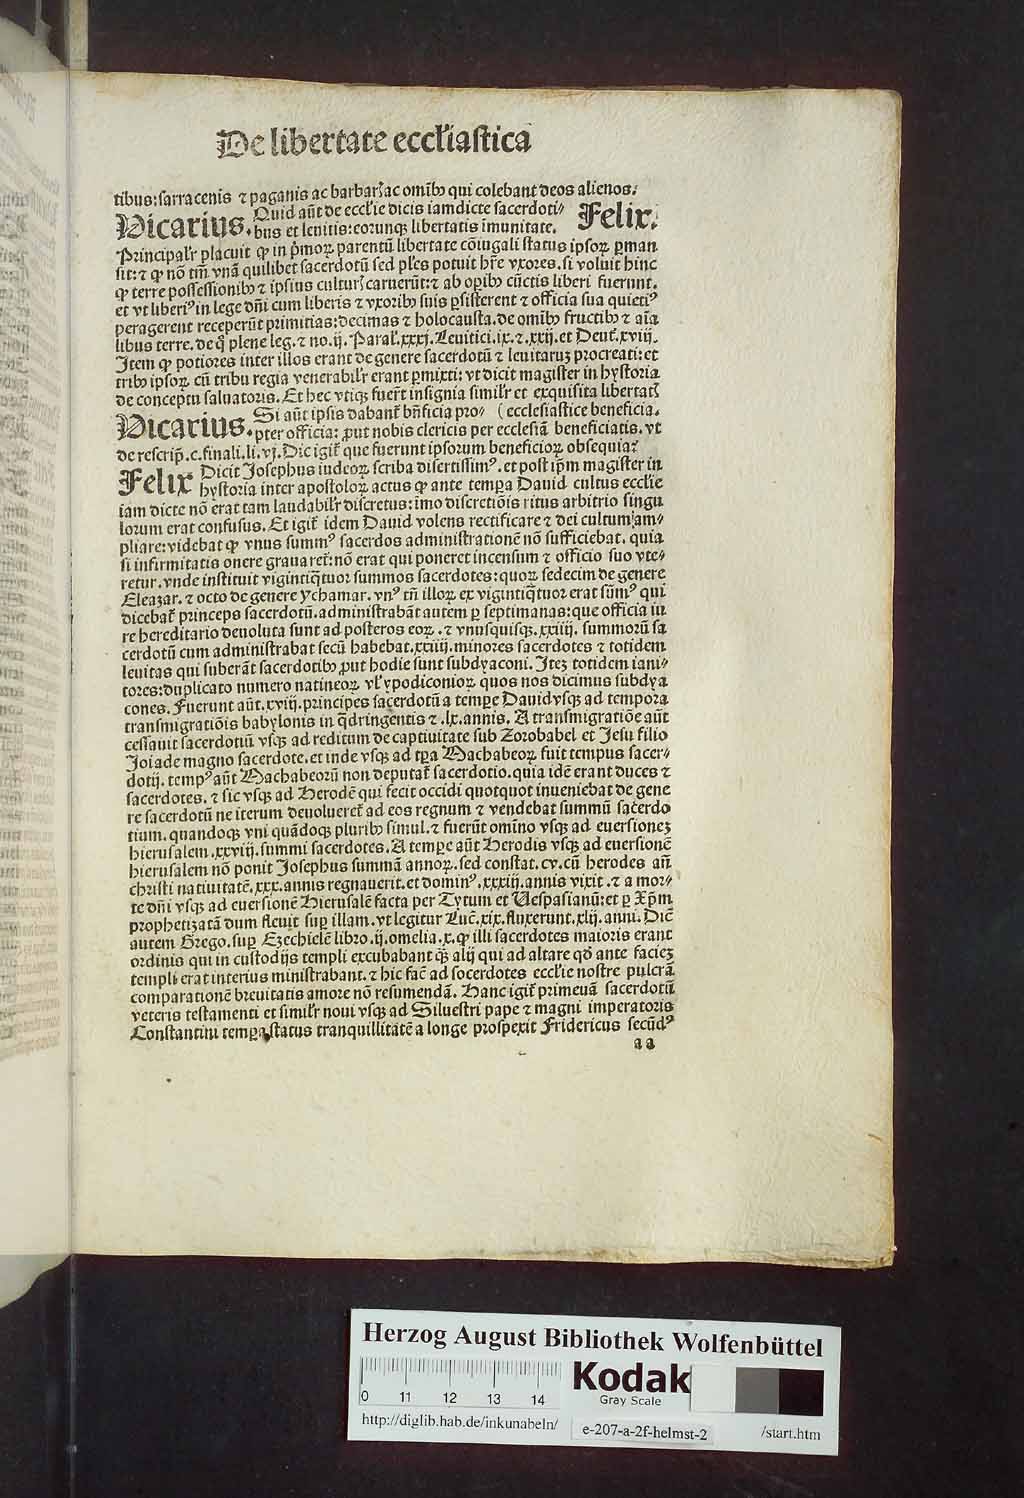 De libertate eccl'iastica
tibus: sarracenis ⁊ paganis ac barbarꝭ ac om̄ibꝰ qui colebant deos alienos.
Vicarius. Quid aūt de eccl'ie dicis iamdicte sacerdoti⸗ Felix.
bus et leuitis: eorunqꝫ libertatis imunitate.
Principalr̄ placuit ꝙ in p̄moꝝ parentū libertate cōiugali status ipsoꝝ ꝑman
sit: ⁊ ꝙ nō tm̄ vnā quilibet sacerdotū sed pl̄es potuit hr̄e vxores. si voluit hinc
ꝙ terre possessionibꝰ ⁊ ipsius culturꝭ caruerūt: ⁊ ab oꝑibꝰ cūctis liberi fuerunt.
et vt liberiꝰ in lege dn̄i cum liberis ⁊ vxoribꝰ suis ꝑsisterent ⁊ officia sua quietiꝰ
peragerent receperūt primitias: decimas ⁊ holocausta. de om̄ibꝰ fructibꝰ ⁊ aīa
libus terre. de q̄ plene leg. ⁊ no. ij. Paral'. xxxj. Leuitici. ix. ⁊. xxij. et Deut̄. xviij.
Item ꝙ potiores inter illos erant de genere sacerdotū ⁊ leuitaruꝫ procreati: et
tribꝰ ipsoꝝ cū tribu regia venerabilr̄ erant ꝑmixti: vt dicit magister in hystoria
de conceptu saluatoris. Et hec vtiqꝫ fuer̄t insignia similr̄ et exquisita libertatꝭ
Vicarius. Si aūt ipsis dabant̄ bn̄ficia pro⸗ (ecclesiastice beneficia.
pter officia: ꝓut nobis clericis per ecclesiā beneficiatis. vt
de rescrip̄. c. finali. li. vj. Dic igit̄ que fuerunt ipsorum beneficioꝝ obsequia?
Felix Dicit Josephus iudeoꝝ scriba disertissimꝰ. et post ip̄m magister in
hystoria inter apostoloꝝ actus ꝙ ante temꝑa Dauid cultus eccl'ie
iam dicte nō erat tam laudabilr̄ discretus: imo discretiōis ritus arbitrio singu
lorum erat confusus. Et igit̄ idem Dauid volens rectificare ⁊ dei cultum am⸗
pliare: videbat ꝙ vnus summꝰ sacerdos administrationē nō sufficiebat. quia
si infirmitatis onere grauaret̄: nō erat qui poneret incensum ⁊ officio suo vte⸗
retur. vnde instituit vigintiq̄tuor summos sacerdotes: quoꝝ sedecim de genere
Eleazar. ⁊ octo de genere ychamar. vnꝰ tn̄ illoꝝ ex vigintiq̄tuor erat sūmꝰ qui
dicebat̄ princeps sacerdotū. administrabāt autem ꝑ septimanas: que officia iu
re hereditario deuoluta sunt ad posteros eoꝝ. ⁊ vnusquisqꝫ. xxiiij. summorū sa
cerdotū cum administrabat secū habebat. xxiiij. minores sacerdotes ⁊ totidem
leuitas qui suberāt sacerdotibꝰ ꝓut hodie sunt subdyaconi. Iteꝫ totidem iani⸗
tores: duplicato numero natineoꝝ vl' ypodiconioꝝ quos nos dicimus subdya
cones. Fuerunt aūt. xviij. principes sacerdotū a temꝑe Dauid vsqꝫ ad tempora
transmigratiōis babylonis in q̄dringentis ⁊. lx. annis. A transmigratiōe aūt
cessauit sacerdotiū vsqꝫ ad reditum de captiuitate sub Zorobabel et Jesu filio
Joiade magno sacerdote. et inde vsqꝫ ad tꝑa Machabeoꝝ fuit tempus sacer⸗
dotij. tempꝰ aūt Machabeorū non deputat̄ sacerdotio. quia idē erant duces ⁊
sacerdotes. ⁊ sic vsqꝫ ad Herodē qui fecit occidi quotquot inueniebat de gene
re sacerdotū ne iterum deuolueret̄ ad eos regnum ⁊ vendebat summū sacerdo
tium. quandoqꝫ vni quādoqꝫ pluribꝰ simul. ⁊ fuerūt omīno vsqꝫ ad euersioneꝫ
hierusalem. xxviij. summi sacerdotes. A temꝑe aūt Herodis vsqꝫ ad euersionē
hierusalem nō ponit Josephus summā annoꝝ. sed constat. cv. cū herodes an̄
christi natiuitatē. xxx. annis regnauerit. et dominꝰ. xxxiij. annis vixit. ⁊ a mor⸗
te dn̄i vsqꝫ ad euersionē Hierusalē facta per Tytum et Uespasianū: et ꝑ Xp̄m
prophetizatā dum fleuit suꝑ illam. vt legitur Luc̄. xix. fluxerunt. xlij. anni. Dic̄
autem Grego. suꝑ Ezechielē libro. ij. omelia. x. ꝙ illi sacerdotes maioris erant
ordinis qui in custodijs templi excubabant qꝫ̄ alij qui ad altare qď ante facieꝫ
templi erat interius ministrabant. ⁊ hic fac̄ ad socerdotes eccl'ie nostre pulcrā
comparationē breuitatis amore nō resumendā. Hanc igit̄ primeuā sacerdotū
veteris testamenti et similr̄ noui vsqꝫ ad Siluestri pape ⁊ magni imperatoris
Constantini temꝑa status tranquillitatē a longe prospexit Fridericus secūdꝰ
aa
Herzog August Bibliothek Wolfenbüttel
Kodak
Gray Scale
0 11 12 13 14
http://diglib.hab.de/inkunabeln/ e-207-a-2f-helmst-2 /start.htm